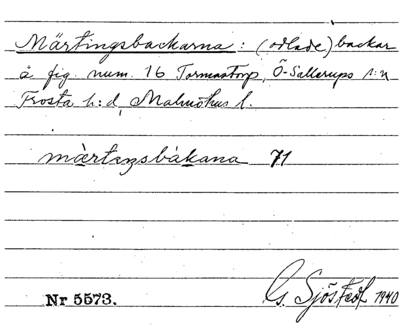 Märtingsbackarna: (odlade) backar
å fig. num. 16 Tormastorp, Ö-Sallerups s:n
Frosta h:d, Malmöhus l.
màrtiŋsbákana 71
Nr 5573. G. Sjöstedt 1940